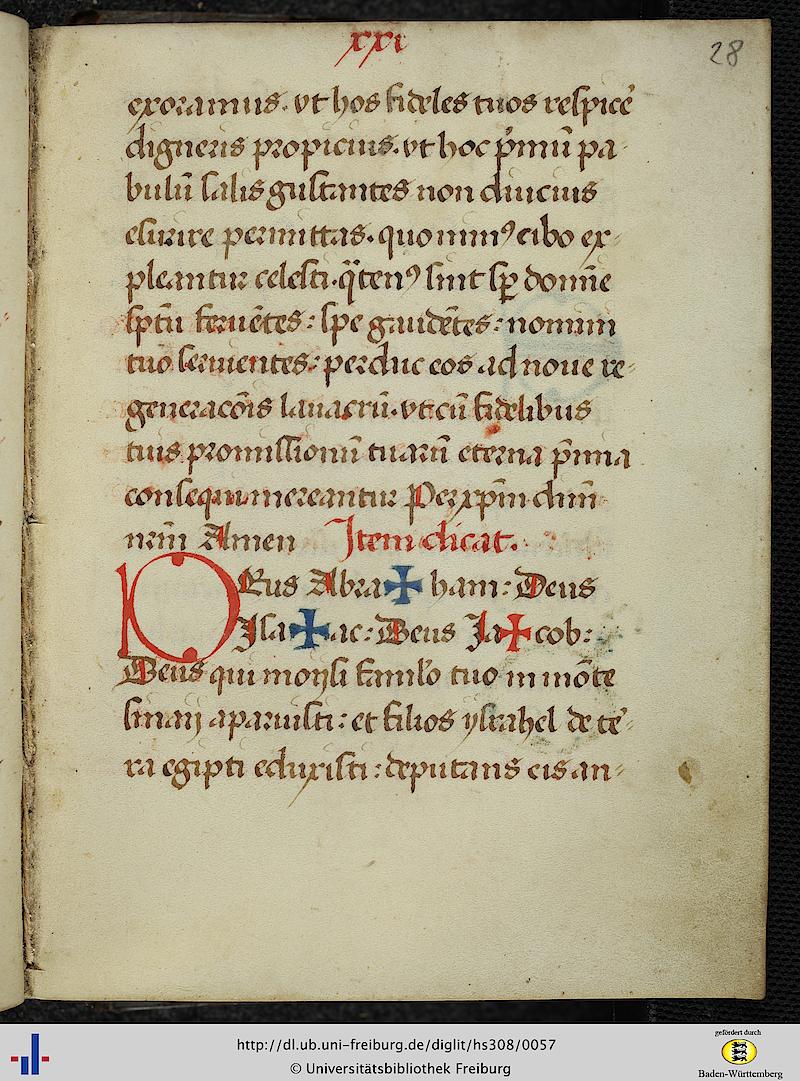 xxi
28
exoramus. vt hos fideles tuos respice᷑
digneris propicius. vt hoc p̄mū pa-
bulū salis gustantes non diucius
esurire permittas. quominꝰ cibo ex-
pleantur celesti. q̄tenꝰ sint sꝑ domīe
sp̄tu feruētes: spe gaudētes: nomini
tuo seruientes: perduc eos ad noue re-
generacōis lauacrū. vt cū fidelibus
tuis promissionū tuarū eterna p̄mia
consequi mereantur Per xp̄m dn̄m
nr̄m Amen Item dicat.
DEus Abra✠ham: Deus
Isa✠ac: Deus Ja✠cob:
Deus qui moysi famĺo tuo in mōte
sinaij aparuisti: et filios ysrahel de te᷑-
ra egipti eduxisti: deputans eis an-
http://dl.ub.uni-freiburg.de/diglit/hs308/0057
© Universitätsbibliothek Freiburg
gefördert durch
Baden-Württemberg